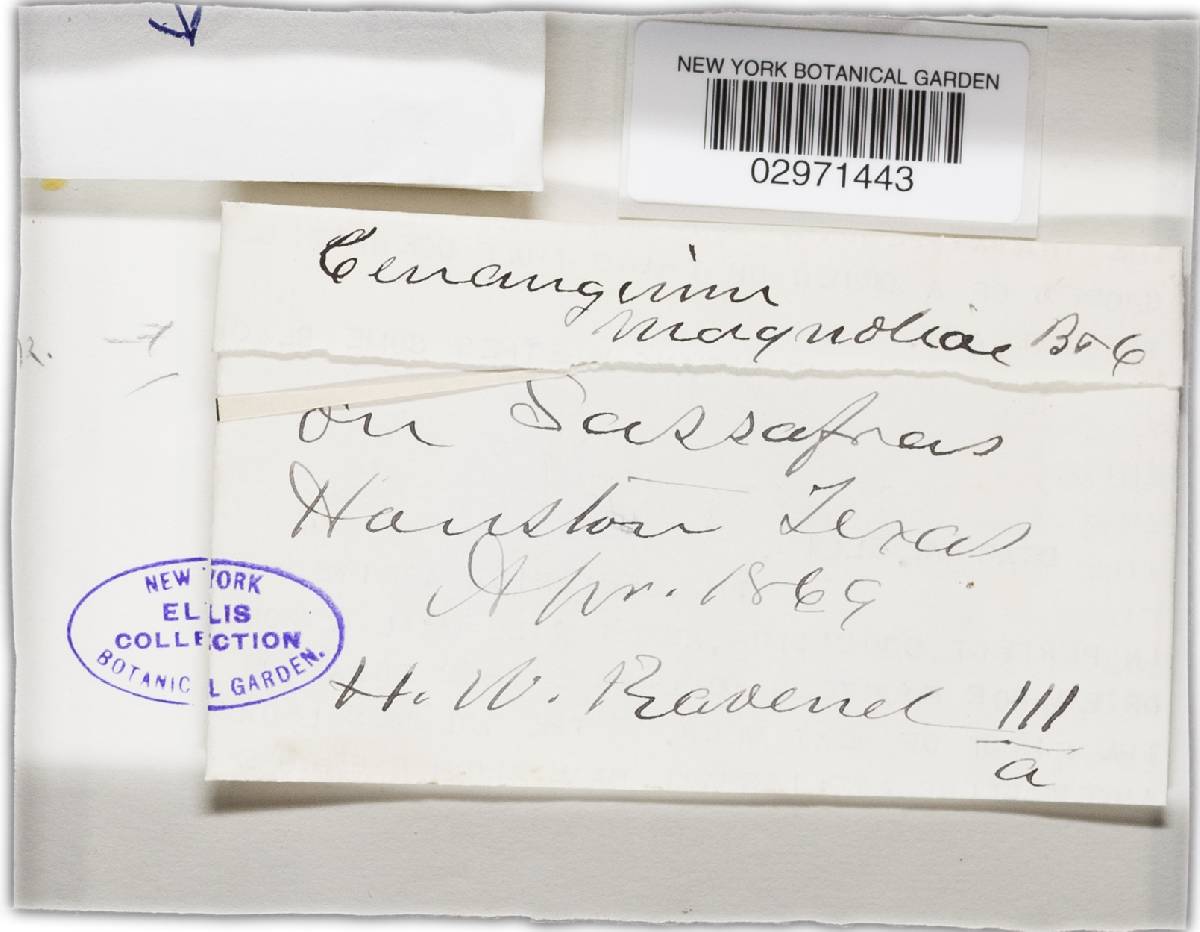 NEW YORK BOTANICAL GARDEN
02971443
Cenangium
Magnoliae B&C
on Sassafras
Houston Texas
Apr. 1869
H. W. Ravenel 111
a
NEW YORK
ELLIS
COLLECTION
BOTANICAL GARDEN.